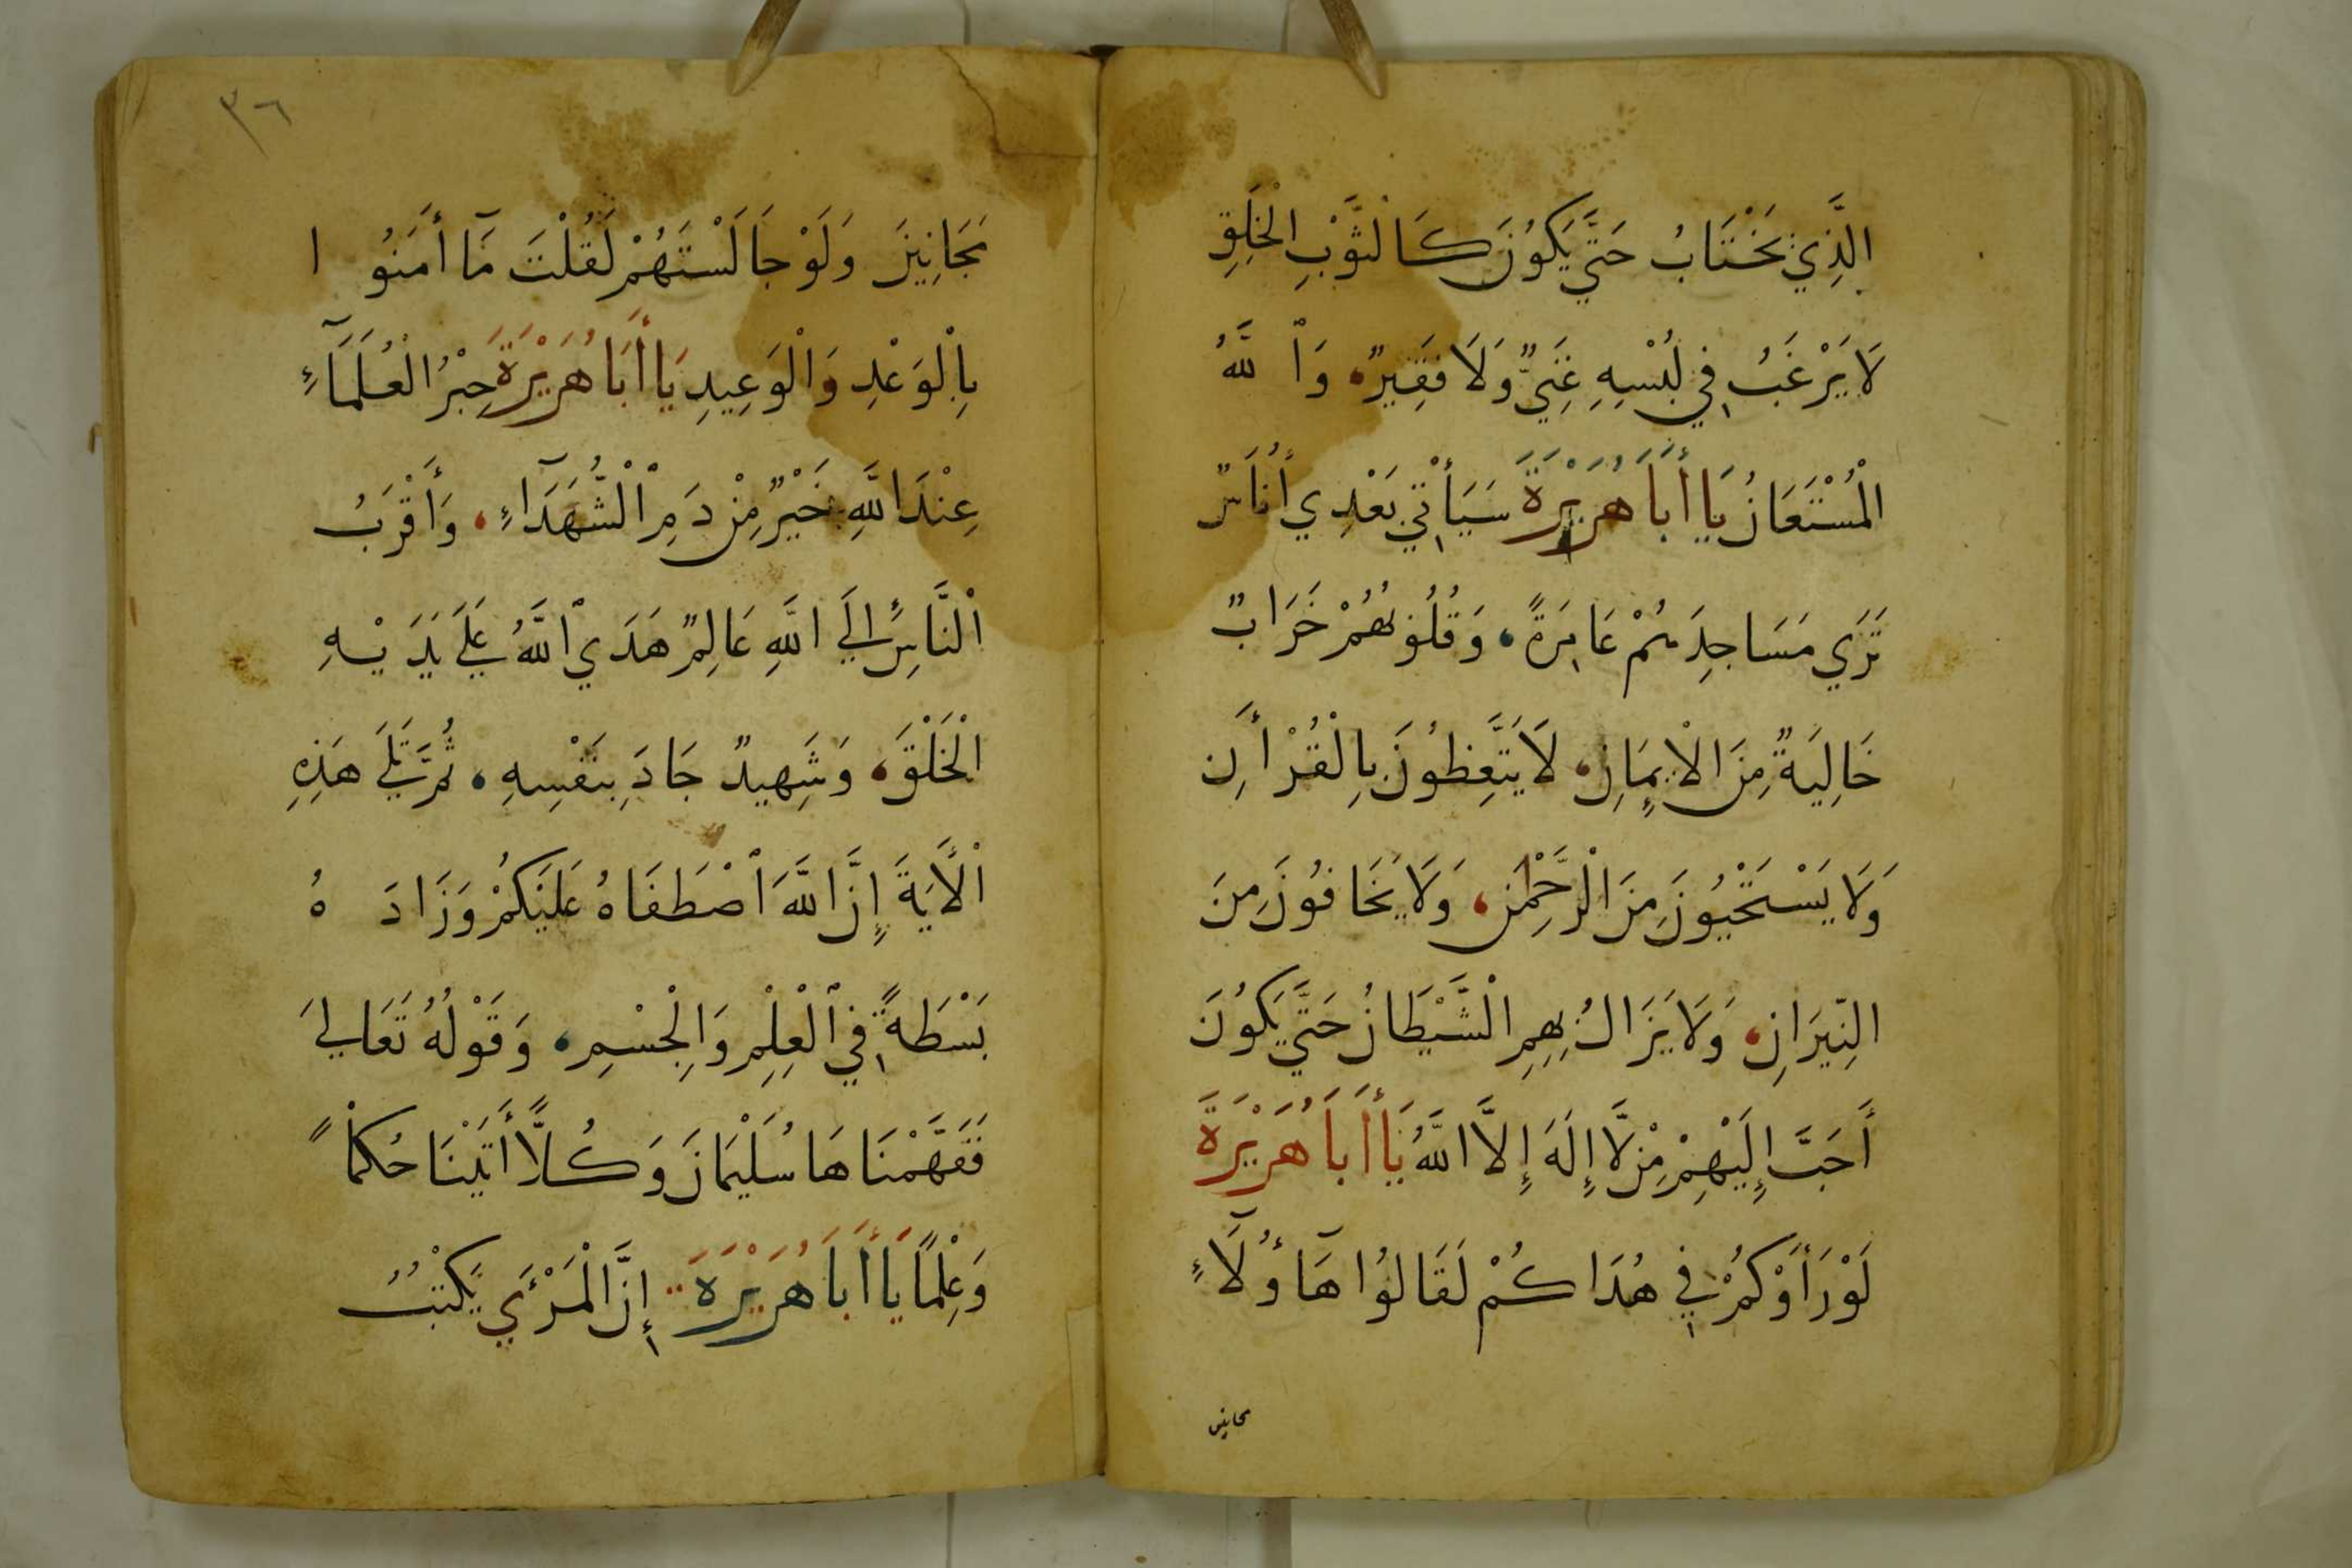 الَّذِي يَخْتَابُ حَتَّي يَكُونَ كَالثَّوْبِ الْخَلَقِ
لَا يَرْغَبُ فِي لُبْسِهِ غَنِيٌّ وَلَا فَقِيرٌ، وَاْللَّهُ
الْمُسْتَعَانُ يَا أَبَا هُرَيْرَةَ سَيَأْتِي بَعْدِي أُنَاسٌ
تَرَي مَسَاجِدَهُمْ عَامِرَةً، وَقُلُوبُهُمْ خَرَابٌ
خَالِيَةٌ مِنَ الْإِيمَانِ، لَا يَتَّعِظُونَ بِالْقُرْأَنِ
وَلَا يَسْتَحْيُونَ مِنَ الْرَّحْمٰنِ، وَلَا يَخَافُونَ مِنَ
النِّيرَانِ، وَلَا يَزَالُ بِهِمِ الْشَّيْطَانُ حَتَّي يَكُونَ
أَحَبَّ إِلَيْهِمْ مِنْ لَّا إِلَهَ إِلَّا اللَّهُ يَا أَبَا هُرَيْرَةَ
لَوْ رَأَوْكُمْ فِي هُدَاكُمْ لَقَالُوا هَآؤُلَآءِ
مجانين
٣٦
مَجَانِينَ وَلَوْ جَالَسْتَهُمْ لَقُلْتَ مَآ أَمَنُوا
بِاْلْوَعْدِ وَاْلْوَعِيدِ يَا أَبَا هُرَيْرَةَ حِبْرُ الْعُلَمَآءِ
عِنْدَ اللَّهِ خَيْرٌ مِنْ دَمِ اْلْشُّهَدَآءِ، وَأَقْرَبُ
اْلنَّاسِ إِلَي اللَّهِ عَالِمٌ هَدَي اْللَّهُ عَلَي يَدَيْهِ
اْلْخَلْقَ، وَشَهِيدٌ جَادَ بِنَفْسِهِ، ثُمَّ تَلَي هَذِهِ
اْلْأَيَةَ إِنَّ اللَّهَ اْصْطَفَاهُ عَلَيْكُمْ وَزَادَهُ
بَسْطَةً فِي اْلْعِلْمِ وَالْجِسْمِ، وَقَوْلُهُ تَعَالَي
فَفَهَّمْنَاهَا سُلَيْمَانَ وَكُلَّا أَتَيْنَا حُكْمًا
وَعِلْمًا يَا أَبَا هُرَيْرَةَ إِنَّ الْمَرْئَ يَكْتُبُ